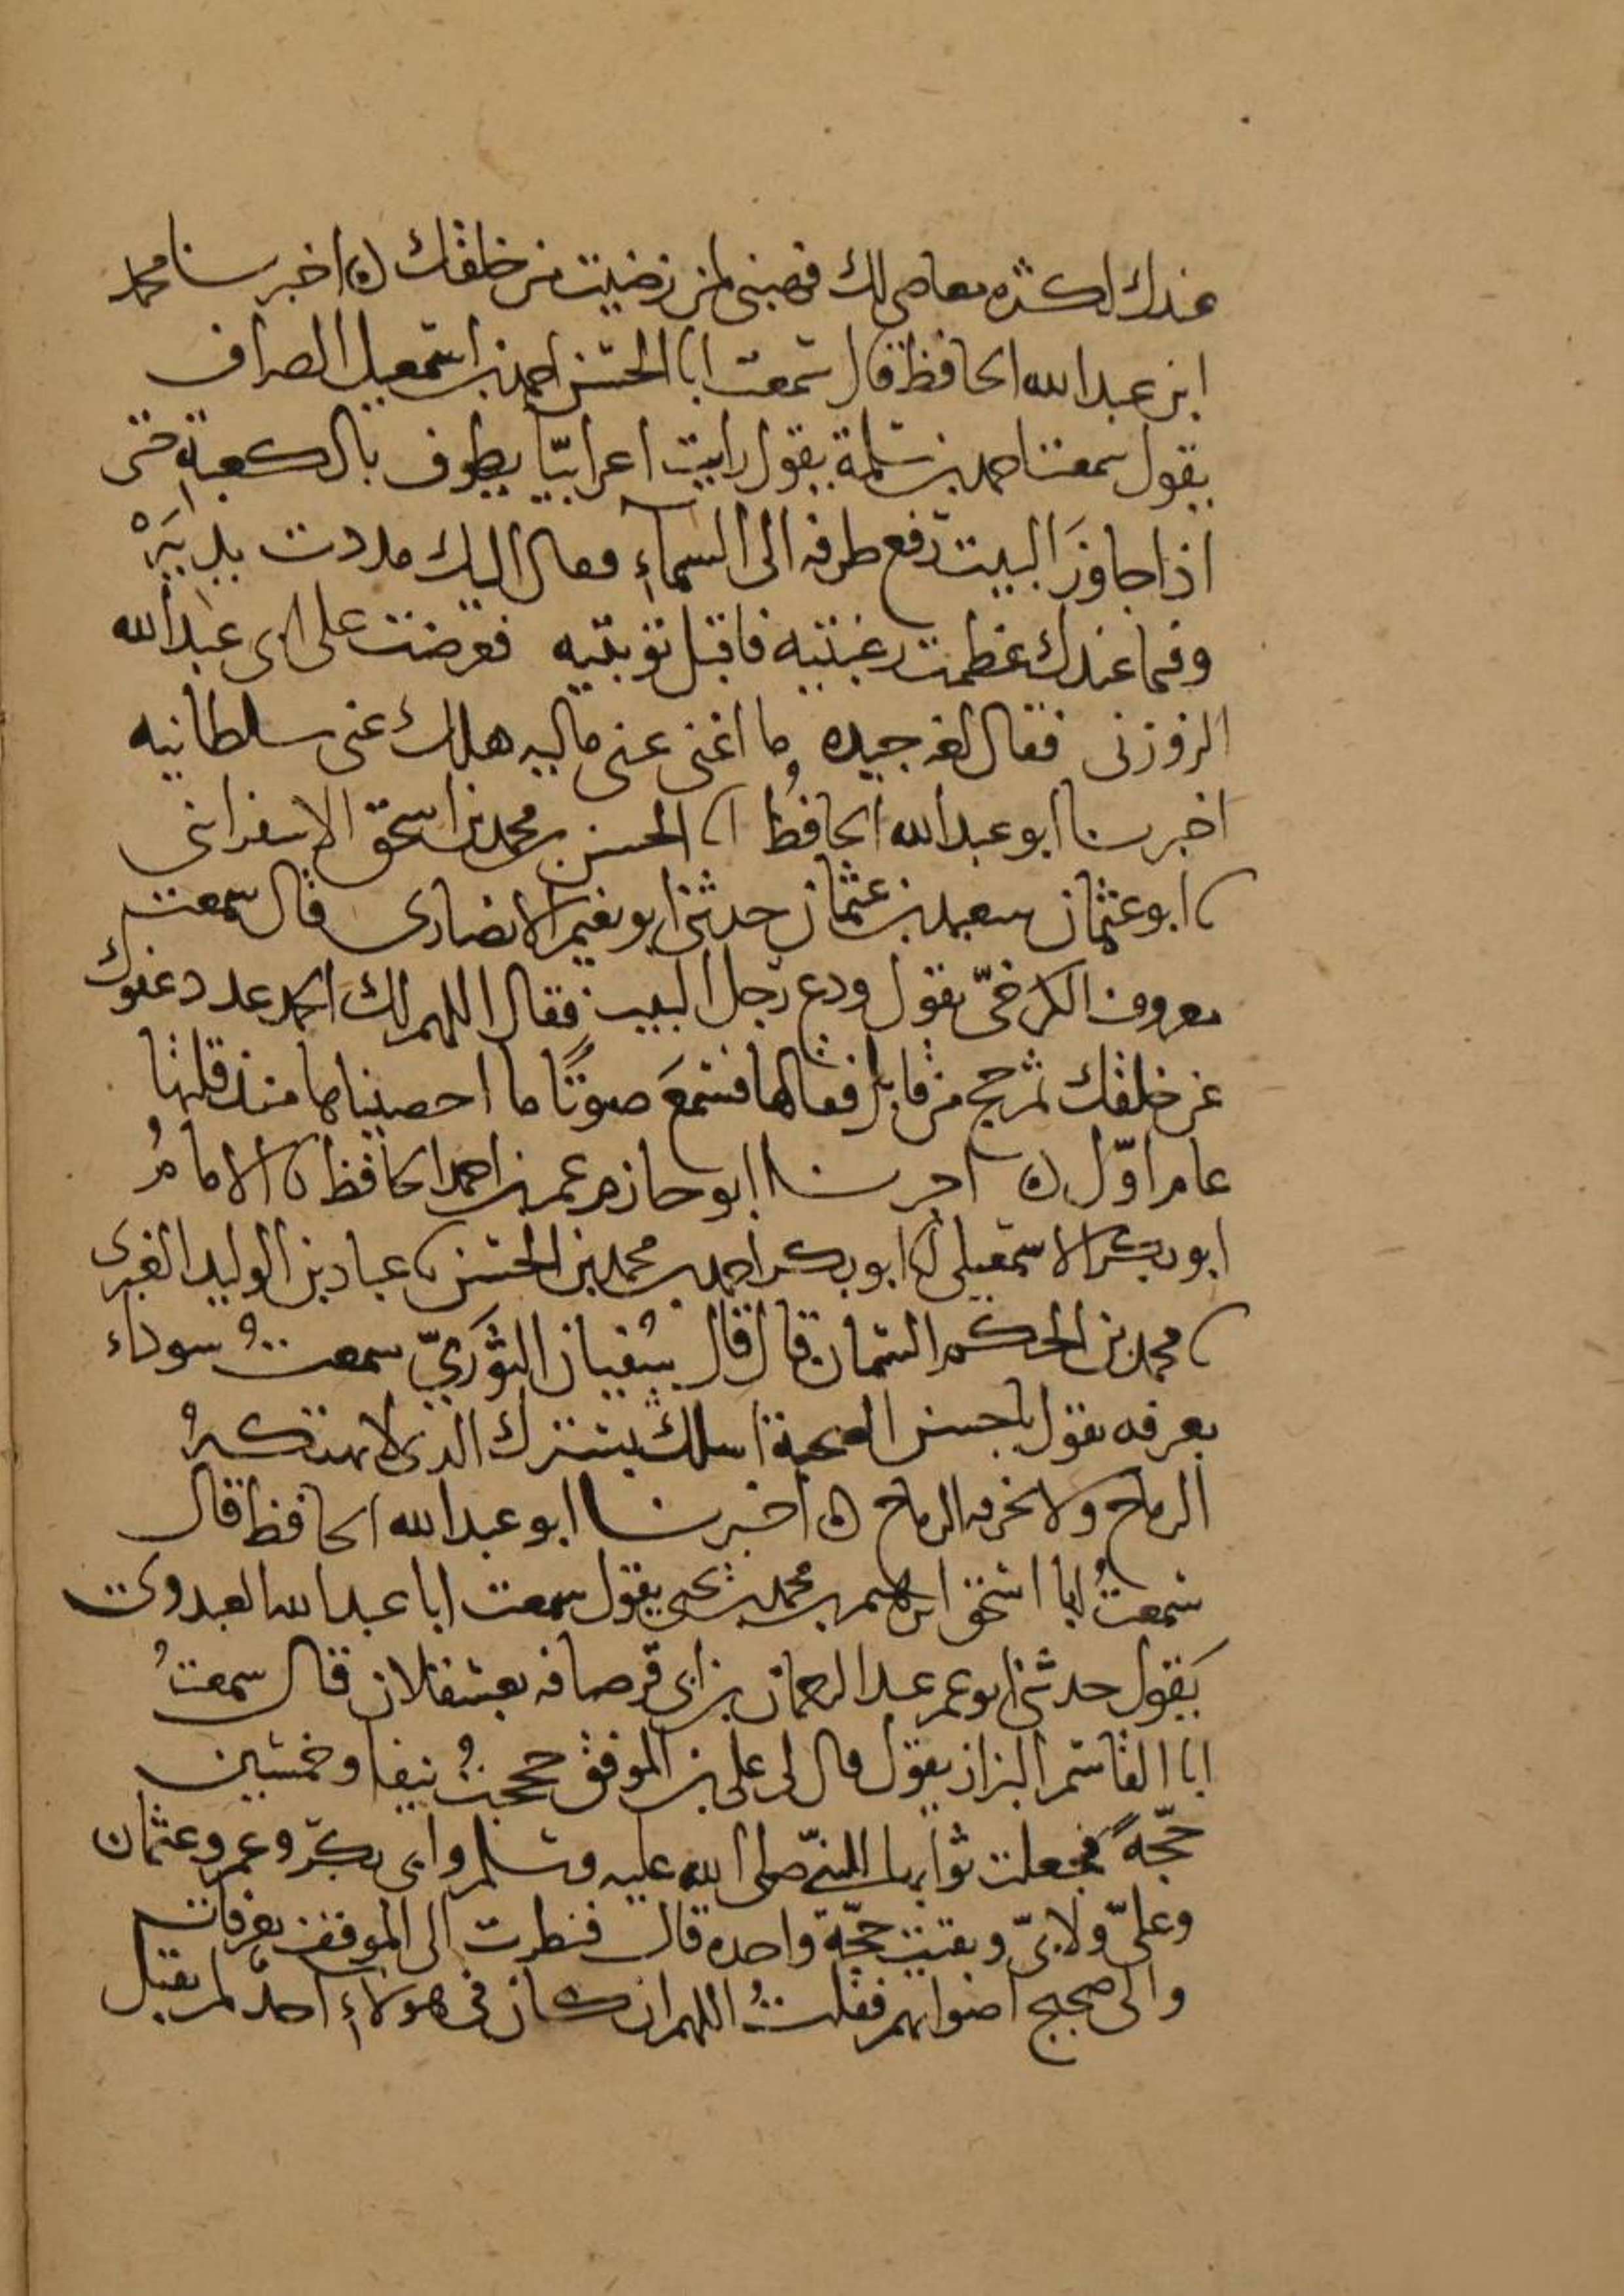 عندك لكثره معاصي لك فهبني لمن رضيت من خلقك ه اخبرسنا محمد
ابن عبد الله الحافظ قال سمعت ابا الحسن احمد بن اسمعيل الصراف
يقول سمعت احمد بن سلمة يقول رايت اعرابيّا يطوف بالكعبة حتى
اذا جاوزَ البيت رفع طرفه الى السماء فقال اليك مددت يديَهْ
وفيما عندك عظمت رغبتيه فاقبل توبتيه فعرضت على ابى عبد الله
الزوزنى فقال لغه جيده ما اغنى عنى ماليه هلك عنى سلطانيه
اخبرنا ابو عبد الله الحافظ انا الحسن بن محمد بن اسحق الاسفراىنى
نا ابو عثمان سعيد بن عثمان حدثنى ابو نعيم الانصارى قال سمعت
معروف الكرخيّ يقول ودع رجل البيت فقال اللهم لك الحمد عدد عفوك
عن خلقك ثم حج من قابل فقالها فسمعَ صوتًا ما احصيناها منذ قلتها
عام اوّل ه اخبرنا ابو حازم عمر بن احمد الحافظ نا الامامُ
ابو بكر الاسمعيلى نا ابو بكر احمد بن محمد بن الحسن نا عباد بن الوليد الغبرى
نا محمد بن الحكم السمان قال قال سُفيان الثوريّ سمعتُ سوداء
بعرفه تقول يا حسن الصحبة اسلك بسترك الذى لا تهتكهُ
الرماح ولا تخرقه الرماح ه اخبرنا ابو عبد الله الحافظ قال
سمعتُ ابا اسحق ابرهيم بن محمد بن يحيى يقول سمعت ابا عبد الله العبدوى
يَقول حدثنى ابو عمر عبد الرحمان بن ابى قرصافه بعسقلان قال سمعتُ
ابا القاسم البزاز يقول قال لى على بن الموفق حججتُ نيفا وخمسين
حجّةً فجعلت ثوابها للنبيّ صلى الله عليه وسلم وابى بكر وعمر وعثمان
وعلىّ ولابىّ وبقيت حجّة واحده قال فنظرت الى الموقف بعرفات
والى ضجيج اصواتهم فقلتُ اللهم ان كان فى هولاء احدٌ لم يقبل